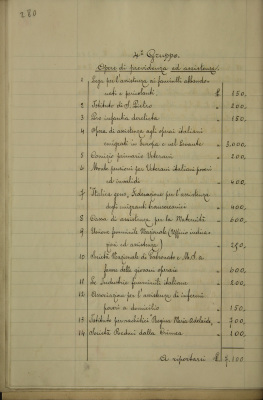 280
4° Gruppo.
Opere di previdenza ed assistenza.
1 Lega per l'assistenza ai fanciulli abbando-
nati e pericolanti £ 150,
2 Istituto di S. Pietro " 200,
3 Pro infantia derelicta " 150,
4 Opera di assistenza agli operai italiani
emigrati in Europa e nel Levante " 3.000,
5 Comizio primario Veterani " 200,
6 Monte pensioni per Veterani italiani poveri
ed invalidi " 400,
7 Italica gens, Federazione per l'assistenza
degli emigranti transoceanici " 400,
8 Cassa di assistenza per la Maternità " 600,
9 Unione femminile Nazionale (Ufficio indica-
zioni ed assistenza) " 250,
10 Società Nazionale di Patronato e M. S. a
favore delle giovani operaie " 600,
11 Le Industrie femminili italiane " 200,
12 Associazione per l'assistenza di infermi
poveri a domicilio " 150,
13 Istituto pei rachitici Regina Maria Adelaide, " 700,
14 Società Reduci dalla Crimea " 100,
A riportarsi £ 7.100